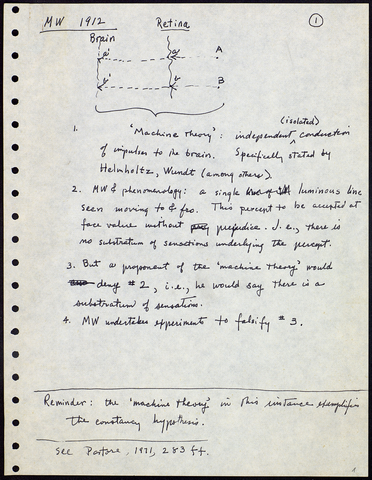 MW 1912
Retina
1
Brain
a' a A
b' b B
(isolated)
1. 'Machine theory': independent ^ conduction
of impulses to the brain. Specifically stated by
Helmholtz, Wundt (among others).
2. MW & phenomenology: a single luminous line
seen moving to & fro. This percept to be accepted at
face value without prejudice. I.e., there is
no substratum of sensations underlying the percept.
3. But a proponent of the 'machine theory' would
deny #2, i.e., he would say there is a
substratum of sensations.
4. MW undertakes experiments to falsify #3.
Reminder: the 'machine theory' in this instance exemplifies
the constancy hypothesis.
See Pastore, 1971, 283 ff.
1